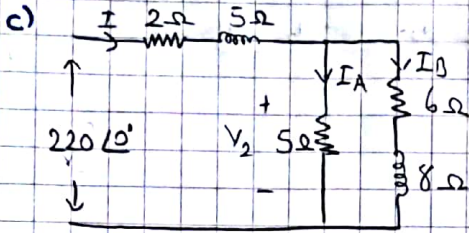 c) I 2Ω 5Ω
I_A I_B
6Ω
+
220∠0° V₂ 5Ω
8Ω
-